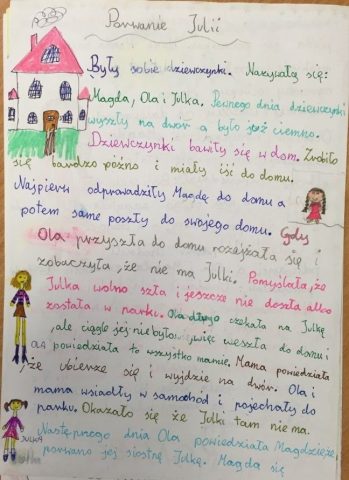 Porwanie Julii
Były sobie dziewczynki. Nazywały się:
Magda, Ola i Julka. Pewnego dnia dziewczynki
wyszły na dwór a było już ciemno.
Dziewczynki bawiły się w dom. Zrobiło
się bardzo późno i miały iść do domu.
Najpierw odprowadziły Magdę do domu a
potem same poszły do swojego domu. Gdy
Ola przyszła do domu rozejżała się i
zobaczyła, że nie ma Julki. Pomyślała, że
Julka wolno szła i jeszcze nie doszła albo
została w parku. Ola długo czekała na Julkę
, ale ciągle jej nie było... więc weszła do domu i
powiedziała to wszystko mamie. Mama powiedziała
, że ubierze się i wyjdzie na dwór. Ola i
mama wsiadły w samochód i pojechały do
parku. Okazało się że Julki tam nie ma.
Następnego dnia Ola powiedziała Magdzie, że
JULKA porwano jej siostrę Julkę. Magda się